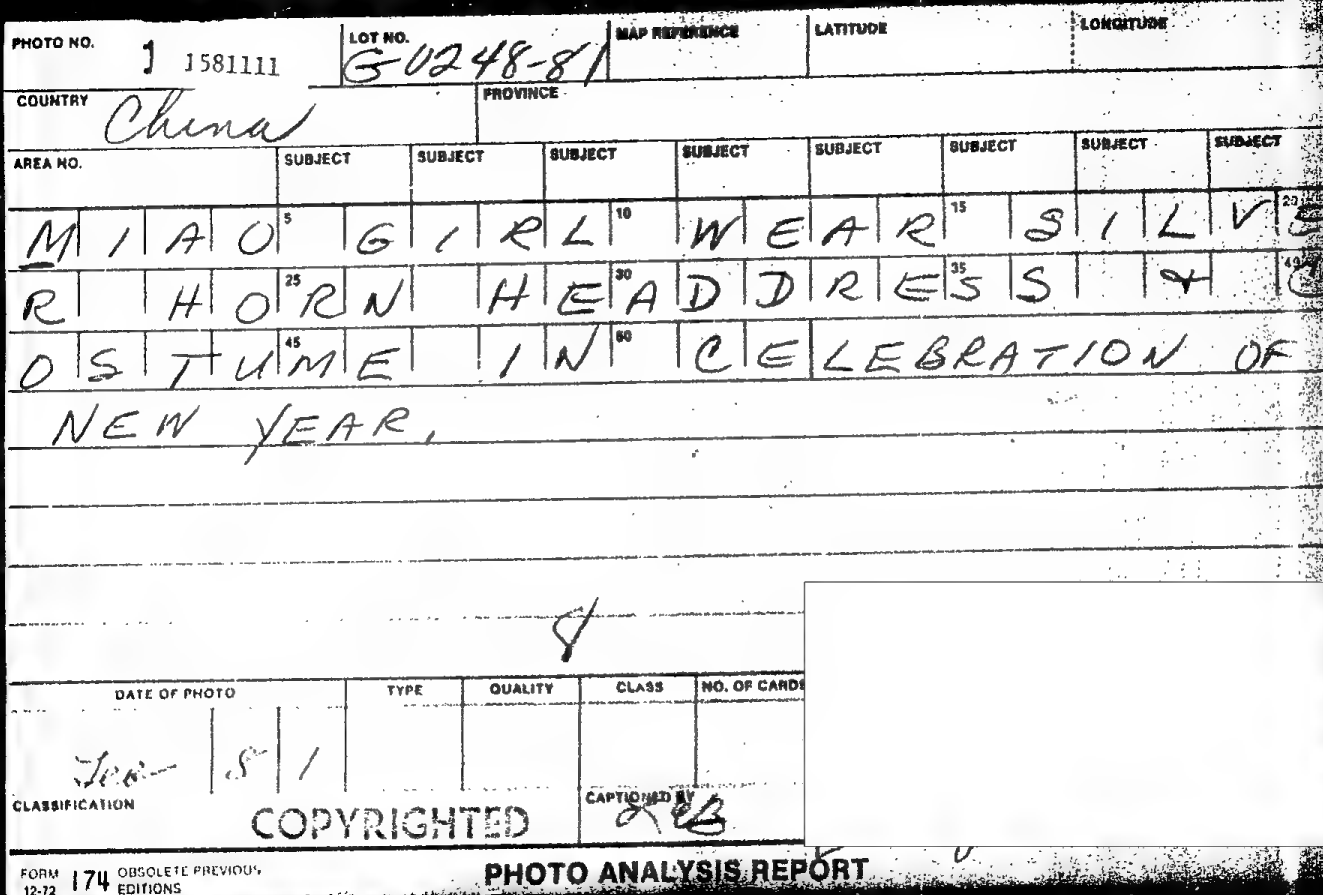 PHOTO NO. 1 1581111 LOT NO. G-0248-81 MAP REFERENCE LATITUDE LONGITUDE
COUNTRY China PROVINCE
AREA NO. SUBJECT SUBJECT SUBJECT SUBJECT SUBJECT SUBJECT SUBJECT SUBJECT
MIAO 5 GIRL 10 WEAR 15 SILVE 20
R HORN 25 HEAD 30 DRESS 35 & C 40
OSTUME 45 IN 50 CELEBRATION OF
NEW YEAR.
DATE OF PHOTO TYPE QUALITY CLASS NO. OF CARDS
81
CLASSIFICATION COPYRIGHTED CAPTIONED BY
FORM 12-72 174 OBSOLETE PREVIOUS EDITIONS PHOTO ANALYSIS REPORT